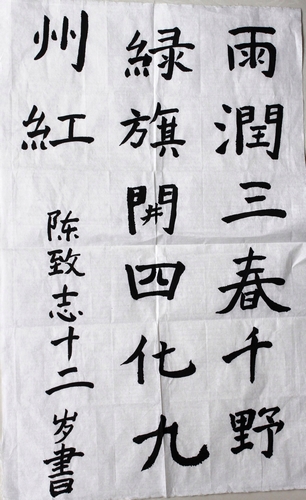 雨潤三春千野
緑旗開四化九
州紅
陈致志十二岁書